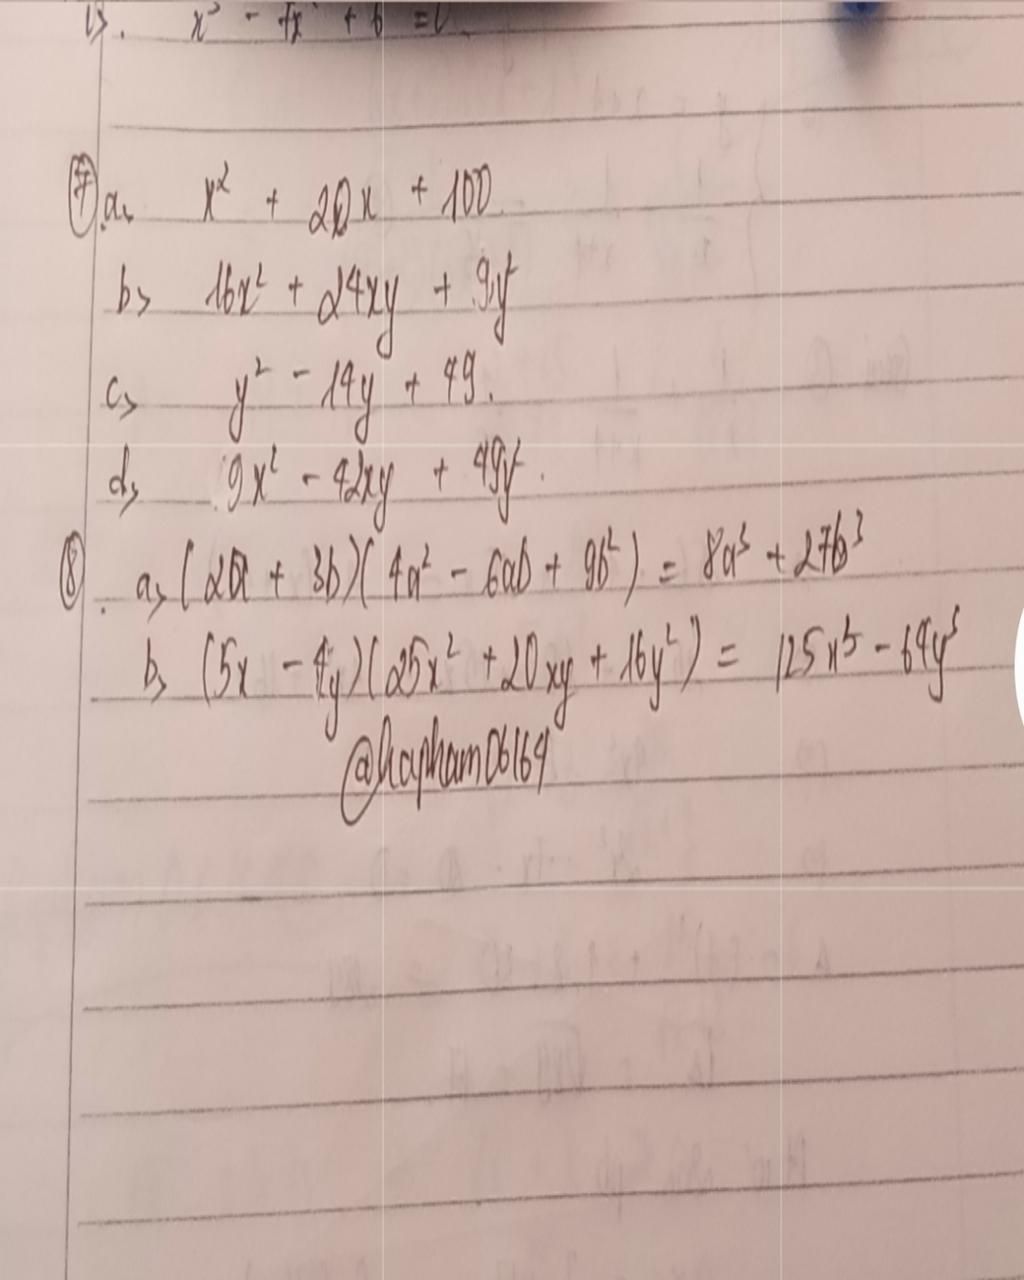 x³ - 7x + 6 = 0
⑦ a, x² + 20x + 100
b, 16x² + 24xy + 9y²
c, y² - 14y + 49.
d, 9x² - 42xy + 49y².
⑧ a, (2a + 3b)(4a² - 6ab + 9b²) = 8a³ + 27b³
b, (5x - 4y)(25x² + 20xy + 16y²) = 125x³ - 64y³
@hapham06164